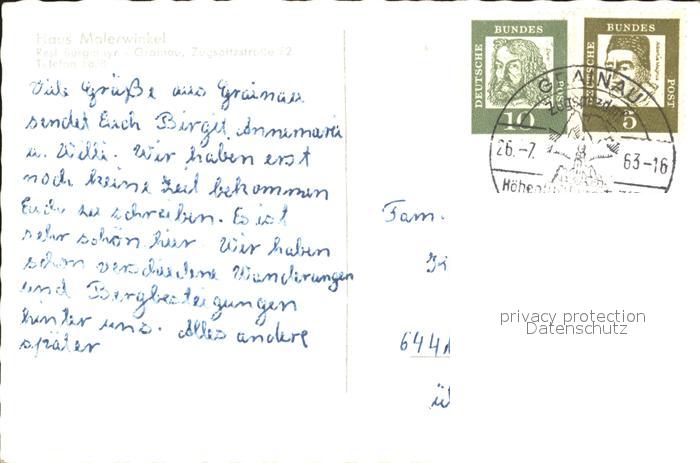 Haus Malerwinkel
Grainau, Zugspitzstraße 82
Viele Grüße aus Grainau
sendet Euch Birgit, Annemarie
u. Willi. Wir haben erst
noch keine Zeit bekommen
Euch zu schreiben. Es ist
sehr schön hier. Wir haben
schon verschiedene Wanderungen
und Bergbesteigungen
hinter uns. Alles andere
später
DEUTSCHE BUNDES POST
10
DEUTSCHE BUNDES POST
5
GRAINAU
26.-7.
63-16
Fam.
644
privacy protection
Datenschutz